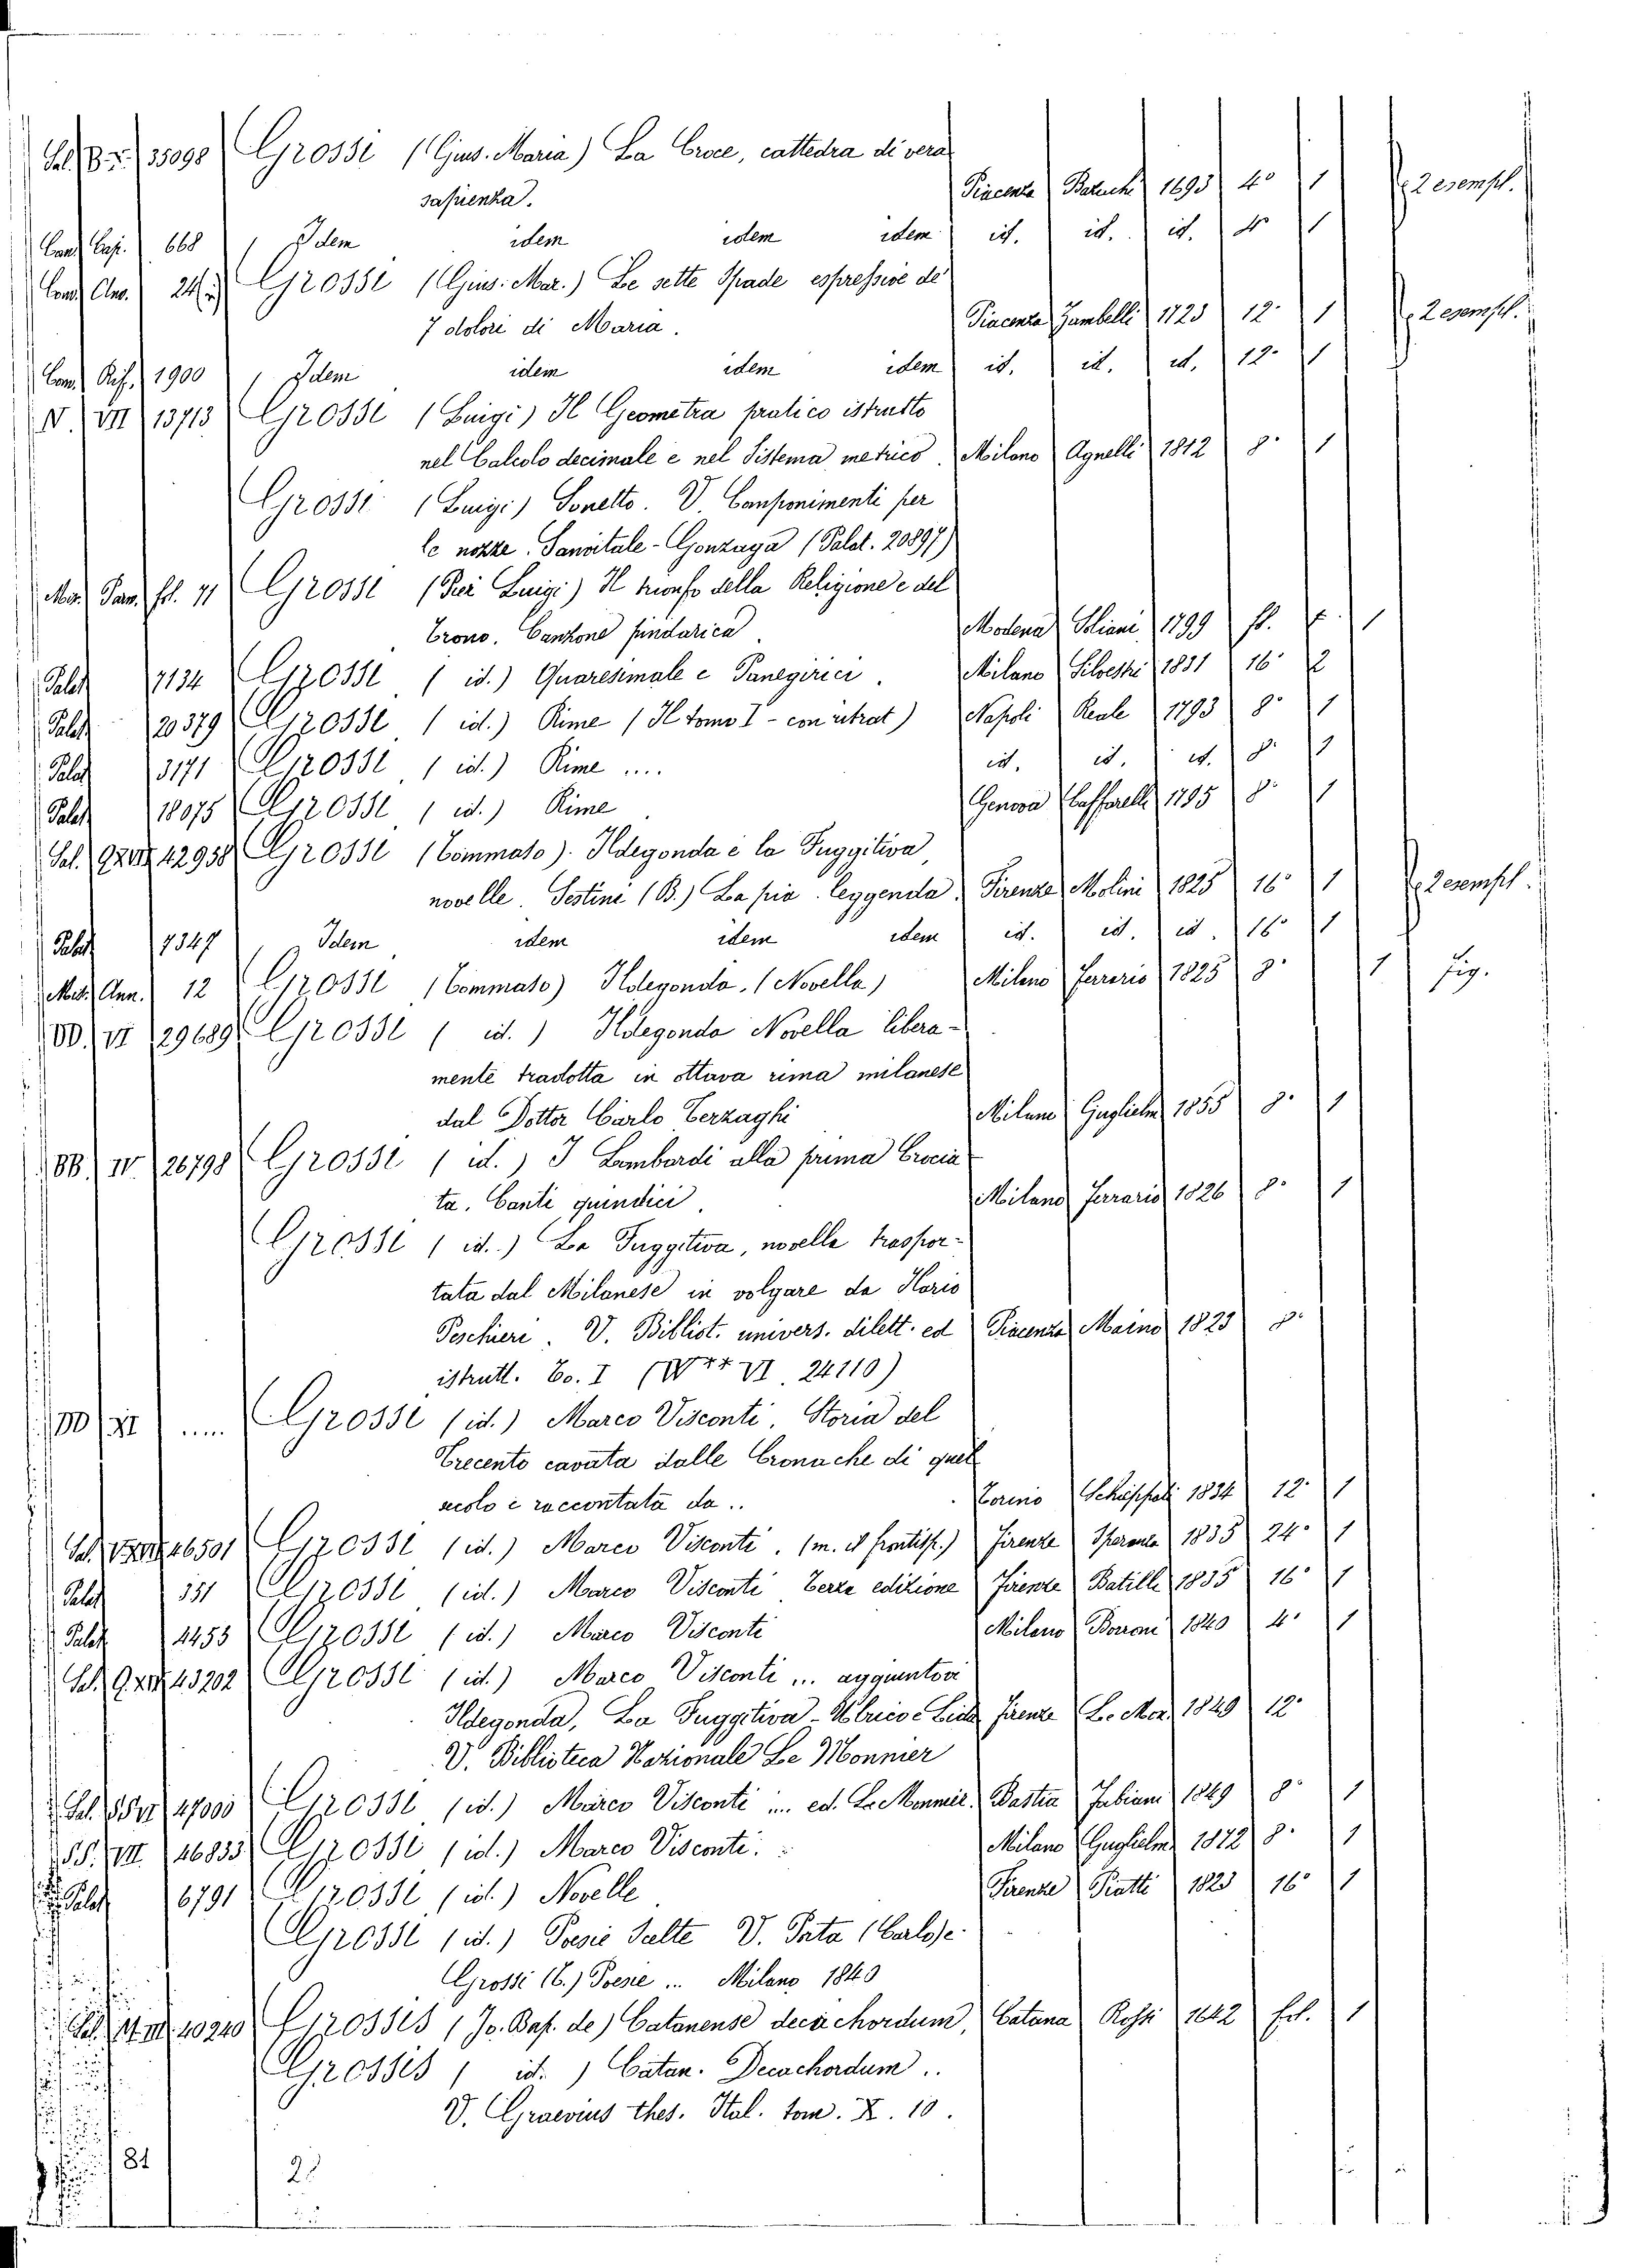 Sal. B. 35098 Grossi (Gius. Maria) La Croce, cattedra di vera
sapienza. Piacenza 1693 4° 1 2 esempl.
Cap. 668 Idem idem idem idem id. id. id. 4° 1
24 Grossi (Gius. Mar.) Le sette Spade espressive de'
7 dolori di Maria. Piacenza Zambelli 1723 12° 1 2 esempl.
1900 Idem idem idem idem id. id. id. 12° 1
V. VII 13713 Grossi (Luigi) Il Geometra pratico istrutto
nel Calcolo decimale e nel Sistema metrico. Milano Agnelli 1812 8° 1
Grossi (Luigi) Sonetto. V. Componimenti per
le nozze Sanvitale-Gonzaga (Palat. 20897)
fol. 71 Grossi (Pier Luigi) Il trionfo della Religione e del
Trono. Canzone pindarica. Modena Soliani 1799 1
Palat 7134 Grossi (id.) Quaresimale e Panegirici. Milano Silvestri 1831 16° 2
Palat 20379 Grossi (id.) Rime (Il tomo I - con ritrat) Napoli Reale 1793 8° 1
Palat 3171 Grossi (id.) Rime .... id. id. id. 8° 1
Palat 18075 Grossi (id.) Rime Genova Caffarelli 1795 8° 1
Sal. 42938 Grossi (Tommaso). Ildegonda e la Fuggitiva,
novelle. Sestini (B.) La pia leggenda. Firenze Molini 1825 16° 1 2 esempl.
Palat 7347 Idem idem idem idem id. id. id. 16° 1
Ann. 12 Grossi (Tommaso) Ildegonda, (Novella) Milano Ferrario 1825 8° 1 fig.
VI 29689 Grossi (id.) Ildegonda Novella libera-
mente tradotta in ottava rima milanese
dal Dottor Carlo Terzaghi Milano Guglielm. 1855 8° 1
IV 26798 Grossi (id.) I Lombardi alla prima Crocia
ta. Canti quindici. Milano Ferrario 1826 8° 1
Grossi (id.) La Fuggitiva, novella traspor-
tata dal Milanese in volgare da Ilario
Peschieri. V. Bibliot. univers. dilett. ed Piacenza Maino 1823 8°
istrutt. To. I (W** VI. 24110)
XI ..... Grossi (id.) Marco Visconti. Storia del
Trecento cavata dalle Cronache di quel
secolo e raccontata da .. Torino 1834 12° 1
Sal. 46501 Grossi (id.) Marco Visconti. (m. il frontisp.) Firenze Speranza 1835 24° 1
Palat 351 Grossi (id.) Marco Visconti Terza edizione Firenze Batelli 1835 16° 1
Palat 4453 Grossi (id.) Marco Visconti Milano Borroni 1840 4° 1
Sal. 43202 Grossi (id.) Marco Visconti ... aggiuntovi
Ildegonda, La Fuggitiva - Ulrico e Lida Firenze Le Mon. 1849 12°
V. Biblioteca Nazionale Le Monnier
Sal. 47000 Grossi (id.) Marco Visconti ... ed. Le Monnier. Bastia Fabiani 1849 8° 1
VII. 46833 Grossi (id.) Marco Visconti. Milano Guglielm. 1872 8° 1
Palat 6791 Grossi (id.) Novelle Firenze Piatti 1823 16° 1
Grossi (id.) Poesie scelte V. Porta (Carlo) e
Grossi (T.) Poesie ... Milano 1840
Sal. III 40240 Grossis (Jo. Bap. de) Catanense decachordum, Catana Rossi 1642 fol. 1
Grossis (id.) Catan. Decachordum ..
V. Graevius thes. Ital. tom. X. 10.
81 2